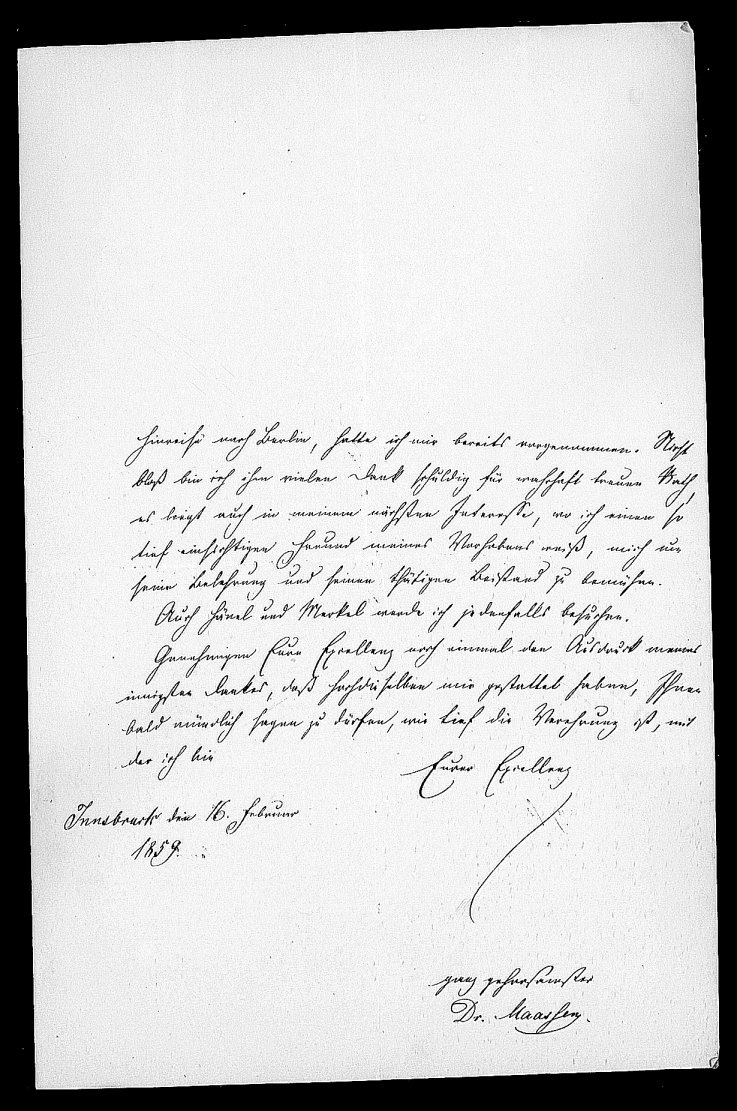 Hinreise nach Berlin, hatte ich mir bereits vorgenommen. Nicht
bloß bin ich ihm vielen Dank schuldig für wahrhaft treuen Rath,
es liegt auch in meinem nächsten Interesse, wo ich einen so
tief einsichtigen Freund meines Vorhabens weiß, mich um
seine Belehrung und seinen thätigen Beistand zu bemühen.
Auch Hänel und Merkel werde ich jedenfalls besuchen.
Genehmigen Eure Excellenz noch einmal den Ausdruck meines
innigsten Dankes, daß Hochdieselben mir gestattet haben, Ihnen
bald mündlich sagen zu dürfen, wie tief die Verehrung ist, mit
der ich bin
Eurer Excellenz
Innsbruck den 16. Februar
1859.
ganz gehorsamster
Dr. Maassen.